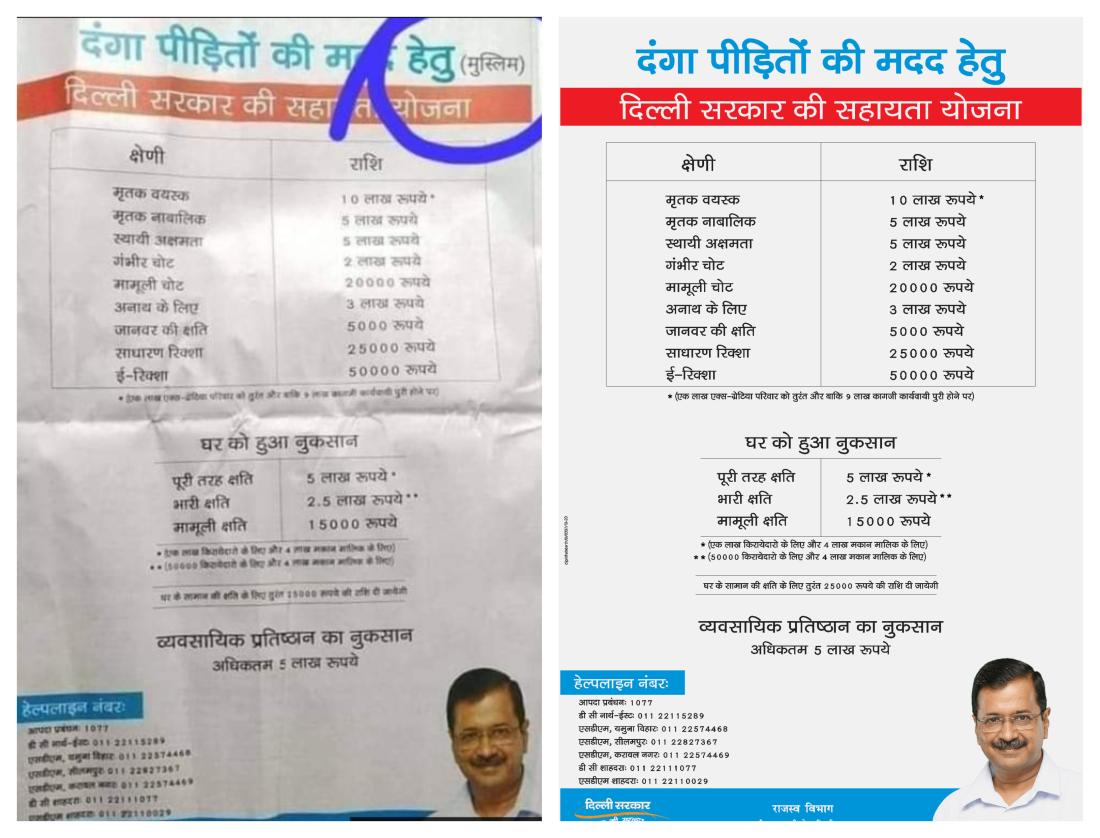 दंगा पीड़ितों की मदद हेतु (मुस्लिम)
दिल्ली सरकार की सहायता योजना
क्षेणी राशि
मृतक वयस्क 10 लाख रूपये*
मृतक नाबालिक 5 लाख रूपये
स्थायी अक्षमता 5 लाख रूपये
गंभीर चोट 2 लाख रूपये
मामूली चोट 20000 रूपये
अनाथ के लिए 3 लाख रूपये
जानवर की क्षति 5000 रूपये
साधारण रिक्शा 25000 रूपये
ई-रिक्शा 50000 रूपये
* (एक लाख एक्स-ग्रेटिया परिवार को तुरंत और बाकि 9 लाख कागजी कार्यवायी पुरी होने पर)
घर को हुआ नुकसान
पूरी तरह क्षति 5 लाख रूपये *
भारी क्षति 2.5 लाख रूपये**
मामूली क्षति 15000 रूपये
* (एक लाख किरायेदारो के लिए और 4 लाख मकान मालिक के लिए)
** (50000 किरायेदारो के लिए और 4 लाख मकान मालिक के लिए)
घर के सामान की क्षति के लिए तुरंत 25000 रूपये की राशि दी जायेगी
व्यवसायिक प्रतिष्ठान का नुकसान
अधिकतम 5 लाख रूपये
हेल्पलाइन नंबरः
आपदा प्रबंधनः 1077
डी सी नार्थ-ईस्टः 011 22115289
एसडीएम, यमुना विहारः 011 22574468
एसडीएम, सीलमपुरः 011 22827367
एसडीएम, करावल नगरः 011 22574469
डी सी शाहदराः 011 22111077
एसडीएम शाहदराः 011 22110029
दंगा पीड़ितों की मदद हेतु
दिल्ली सरकार की सहायता योजना
क्षेणी राशि
मृतक वयस्क 10 लाख रूपये*
मृतक नाबालिक 5 लाख रूपये
स्थायी अक्षमता 5 लाख रूपये
गंभीर चोट 2 लाख रूपये
मामूली चोट 20000 रूपये
अनाथ के लिए 3 लाख रूपये
जानवर की क्षति 5000 रूपये
साधारण रिक्शा 25000 रूपये
ई-रिक्शा 50000 रूपये
* (एक लाख एक्स-ग्रेटिया परिवार को तुरंत और बाकि 9 लाख कागजी कार्यवायी पुरी होने पर)
घर को हुआ नुकसान
पूरी तरह क्षति 5 लाख रूपये *
भारी क्षति 2.5 लाख रूपये**
मामूली क्षति 15000 रूपये
* (एक लाख किरायेदारो के लिए और 4 लाख मकान मालिक के लिए)
** (50000 किरायेदारो के लिए और 4 लाख मकान मालिक के लिए)
घर के सामान की क्षति के लिए तुरंत 25000 रूपये की राशि दी जायेगी
व्यवसायिक प्रतिष्ठान का नुकसान
अधिकतम 5 लाख रूपये
हेल्पलाइन नंबरः
आपदा प्रबंधनः 1077
डी सी नार्थ-ईस्टः 011 22115289
एसडीएम, यमुना विहारः 011 22574468
एसडीएम, सीलमपुरः 011 22827367
एसडीएम, करावल नगरः 011 22574469
डी सी शाहदराः 011 22111077
एसडीएम शाहदराः 011 22110029
दिल्ली सरकार
राजस्व विभाग